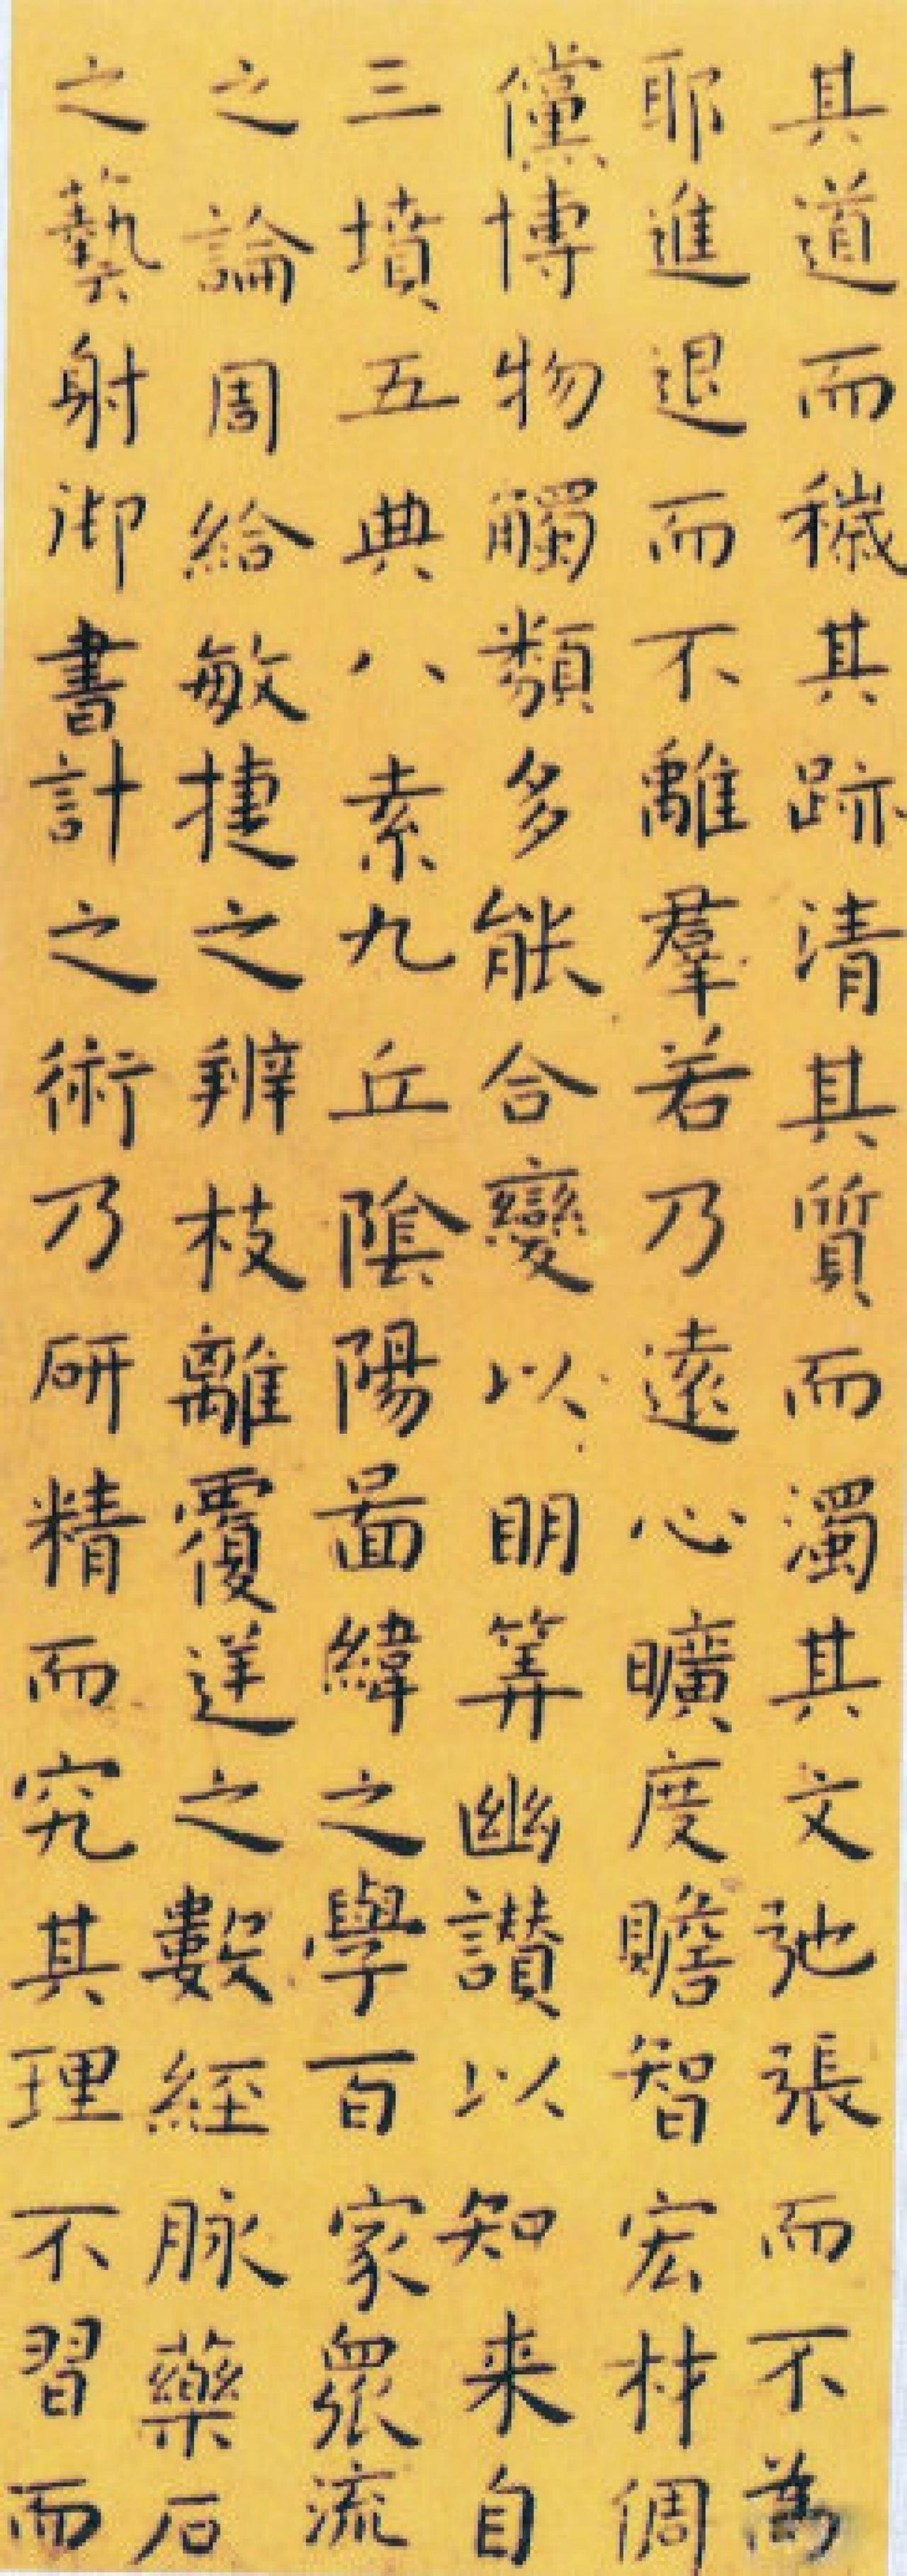 其道而穢其跡清其質而濁其文弛張而不為
耶進退而不離羣若乃遠心曠度贍智宏材倜
儻博物觸類多能合變以明筭幽讃以知来自
三墳五典八素九丘陰陽啚緯之學百家衆流
之論周給敏捷之辨枝離覆逆之數經脉藥石
之藝射御書計之術乃研精而究其理不習而